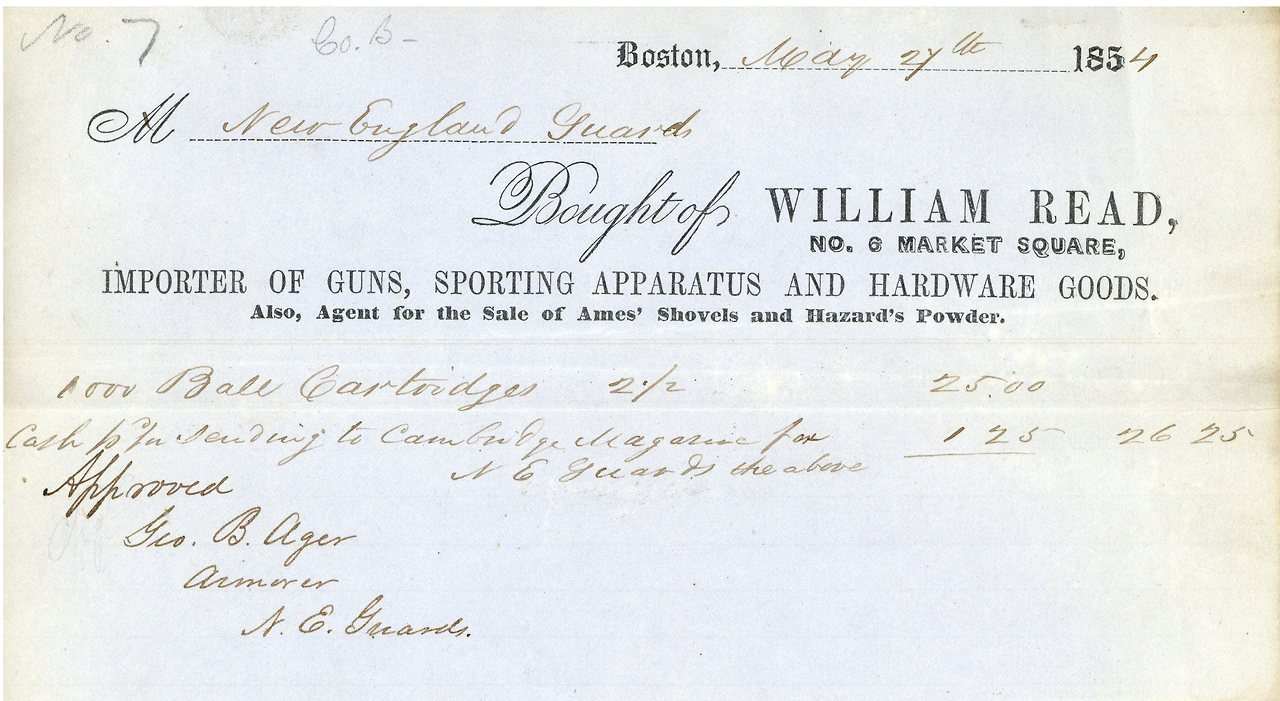 No. 7 Co. B-
Boston, May 27th 1854
M New England Guards
Bought of WILLIAM READ,
NO. 6 MARKET SQUARE,
IMPORTER OF GUNS, SPORTING APPARATUS AND HARDWARE GOODS.
Also, Agent for the Sale of Ames' Shovels and Hazard's Powder.
1000 Ball Cartridges 2 1/2 25.00
Cash pd for sending to Cambridge Magazine for 1 25 26 25
N E Guards the above
Approved
Geo. B. Ager
Armorer
N. E. Guards.